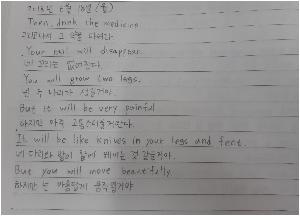 2018년 6월 18일 (월)
Then, drink the medicine
그리고나서 그 약을 마셔라.
Your tail will disappear.
네 꼬리는 없어진다.
You will grow two legs.
넌 두 다리가 생길거야.
But it will be very painful
하지만 아주 고통스러울거란다.
It will be like knives in your legs and feet.
네 다리와 발이 칼에 베이는 것 같을거야.
But you will move beautifully
하지만 넌 아름답게 움직일거야